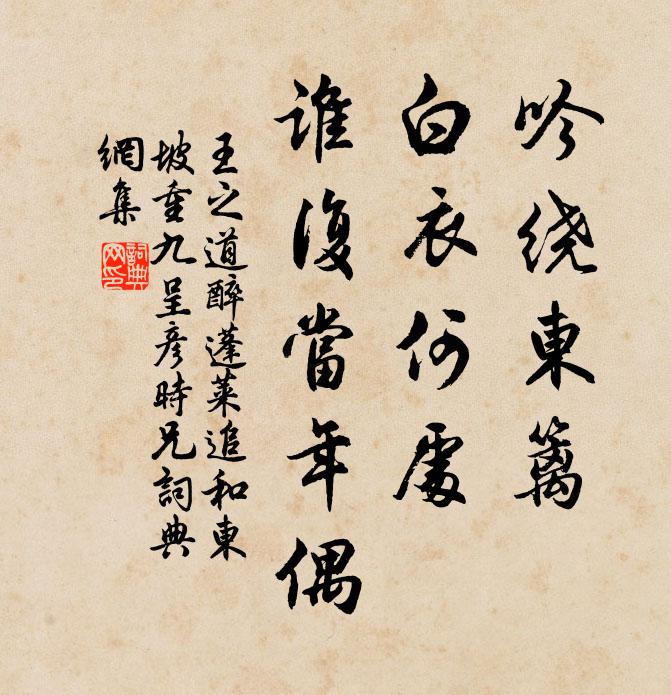 吟绕東籬
白衣何處
誰復當年偶
王之道醉蓬萊追和東
坡重九呈彦時兄詞典
網集
詞典
网印